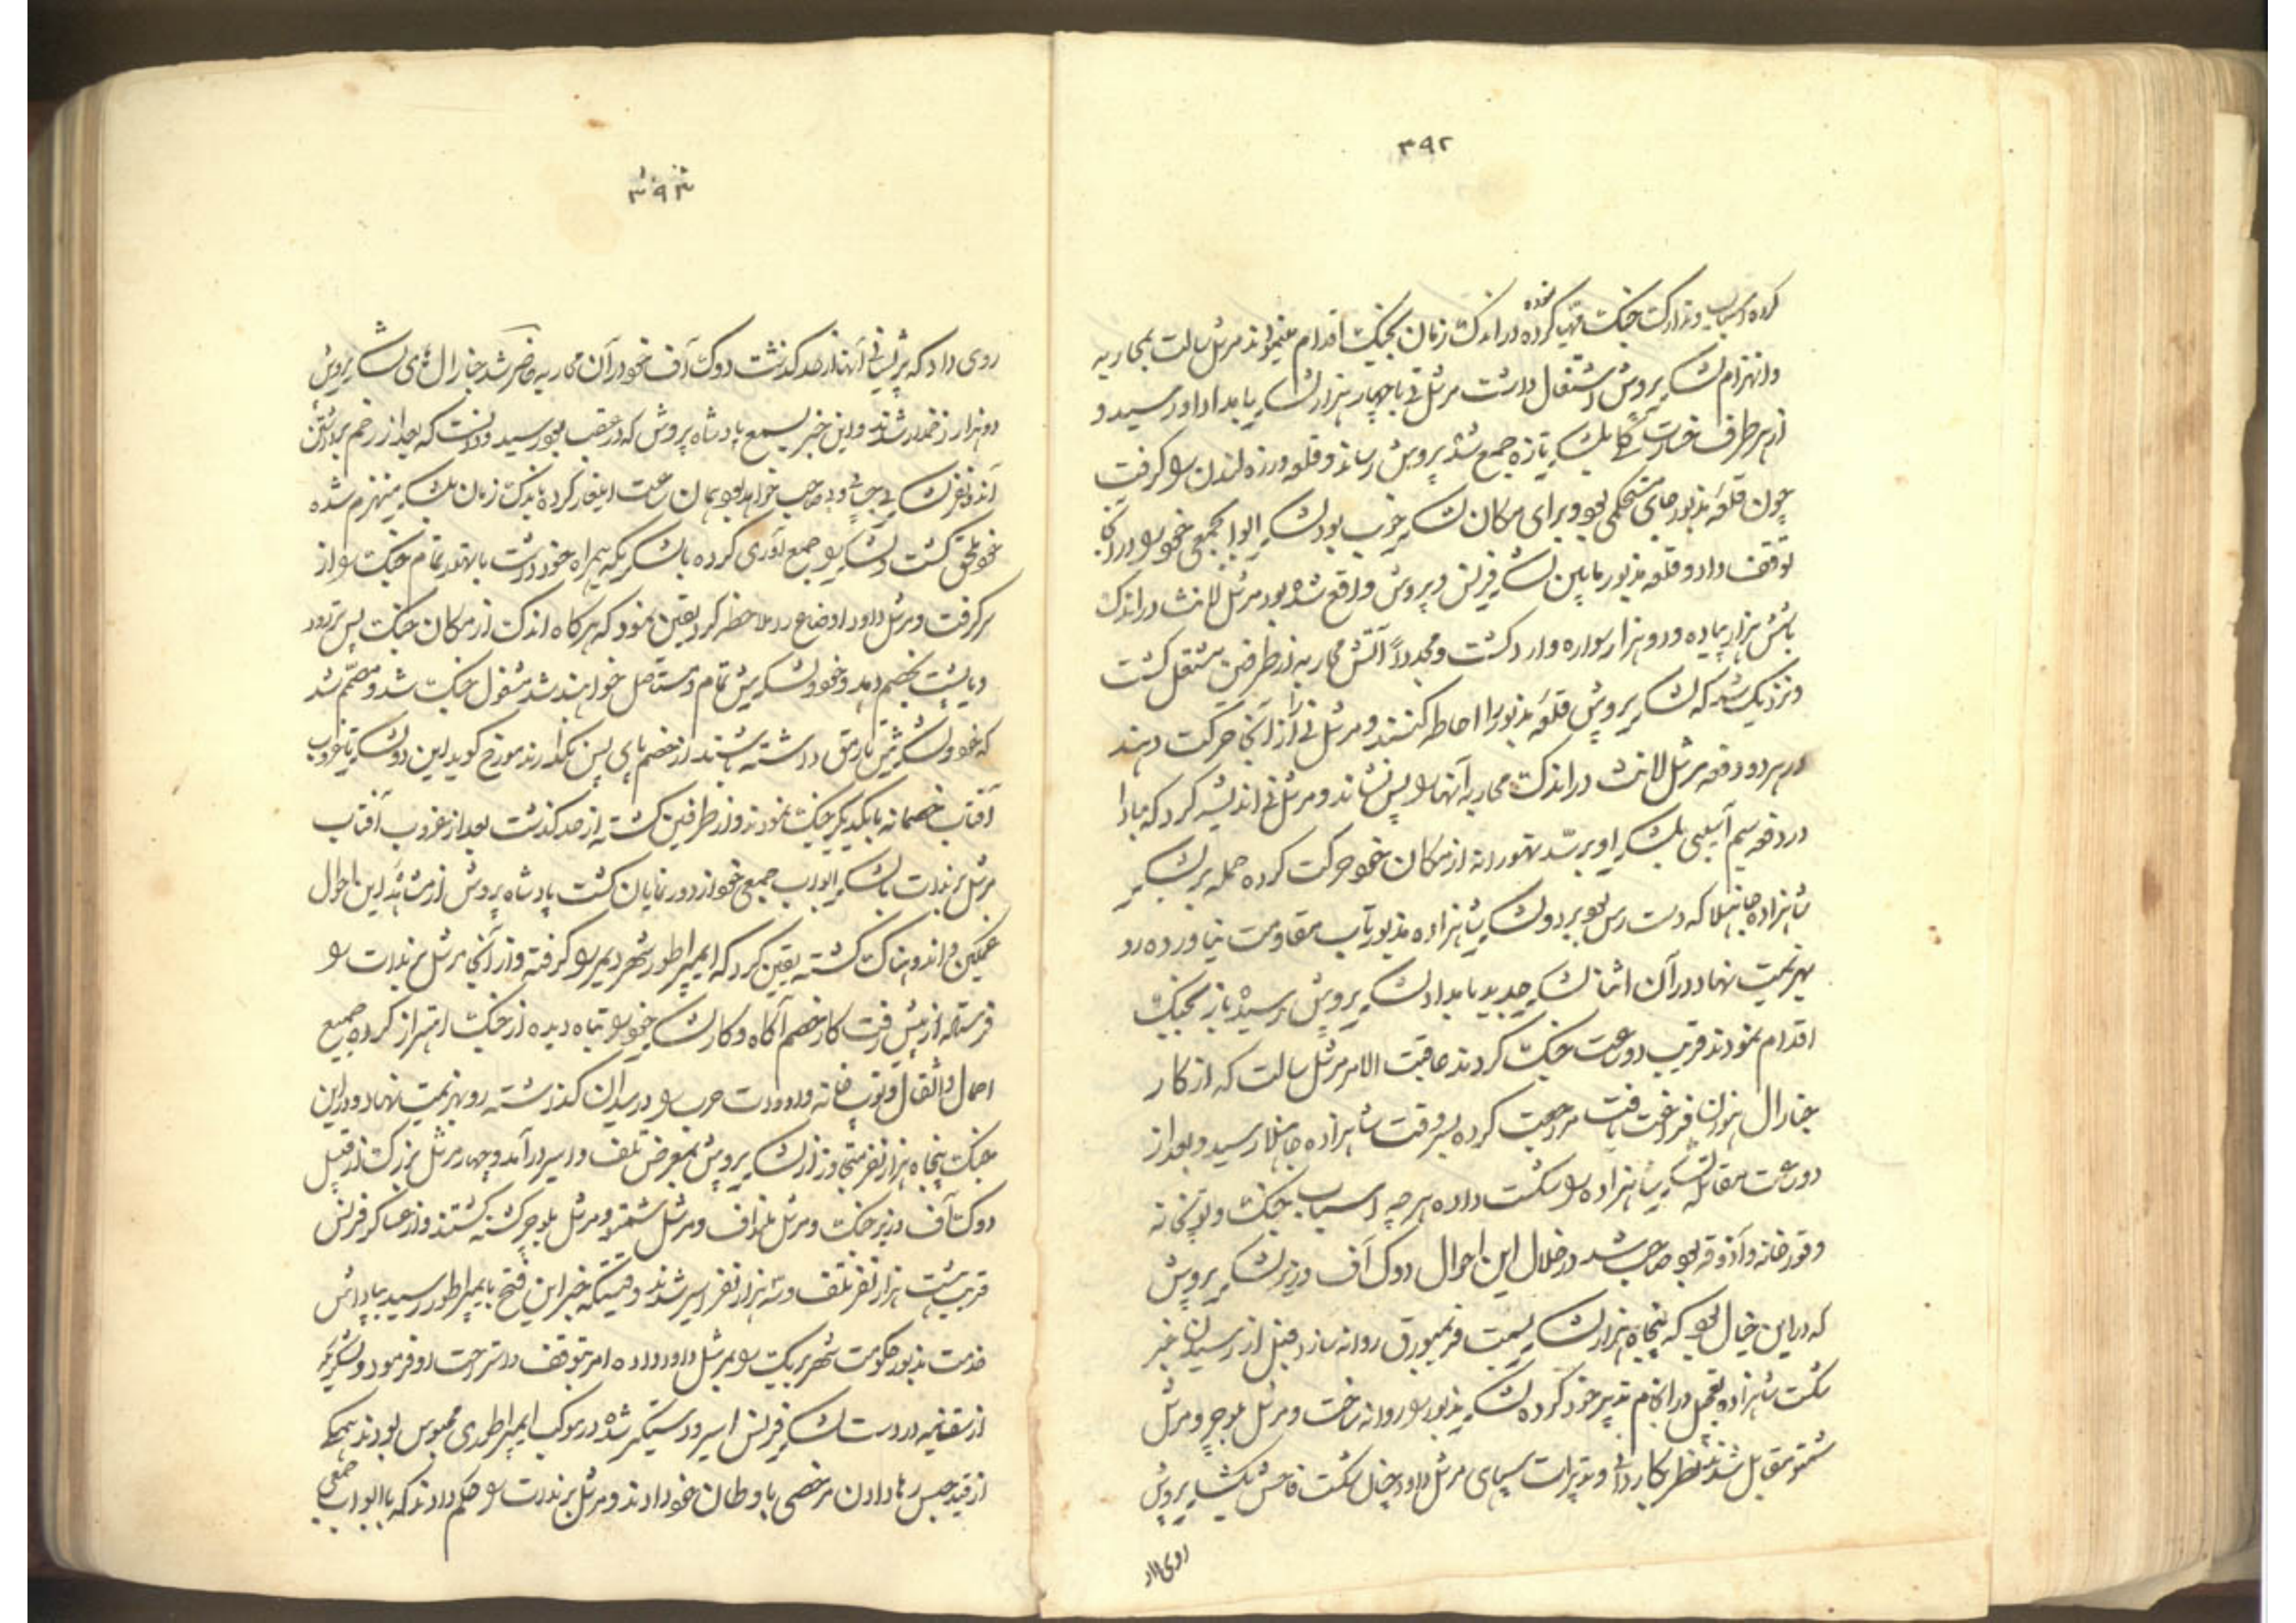 ۳۹۲
کرده اسباب و تدارک جنک مهیا کرده نموده در اندک زمان بجنک اقدام مینمودند مرشل سالت بمحاربه
و انهزام لشکر پروش اشتغال داشت مرشل نی با چهار هزار لشکر بامداد او رسید و
از هر طرف خسارت بلشکر تازه جمع شده پروش رساند و قلعه ورزه لندن را گرفت
چون قلعه مذبور جای مستحکمی بود و برای مکان لشکر خوب بود لشکر ابواب جمعی خود را در آنجا
توقف داد و قلعه مذبور مابین لشکر فرنس و پروش واقع شده بود مرشل لانث در اندک
با شش هزار پیاده و دو هزار سواره وارد کشت و مجدداً آتش محاربه از طرفین مشتعل کشت
و نزدیک شد که لشکر پروش قلعه مذبور را احاطه کنند و مرشل نی را از آنجا حرکت دهند
در هر دو دفعه مرشل لانث در اندک محاربه آنها را پس نشاند و مرشل نی اندیشه کرد که مبادا
در دفعه سیم آسیبی بلشکر او برسد تهورانه از مکان خود حرکت کرده حمله بر لشکر
شاهزاده هانهلا که دست رس بود برد و لشکر شاهزاده مذبور تاب مقاومت نیاورده رو
بهزیمت نهاد در آن اثنا لشکر جدید بامداد لشکر پروش رسیده باز بجنک
اقدام نمودند قریب دو ساعت جنک کردند عاقبت الامر مرشل سالت که از کار
جنارال هزون فراغت یافت مراجعت کرده بسر وقت شاهزاده هانهلا رسید و بعد از
دو ساعت مقاتله لشکر شاهزاده را شکست داده هر چه اسباب جنک و توپخانه
و قورخانه و آذوقه بود صاحب شد در خلال این احوال دوک آف وزیر لشکر پروش
که در این خیال بود که پنجاه هزار لشکر بسمت فرنمبورق روانه سازد قبل از رسیدن خبر
شکست شاهزاده تعجیل در انجام تدبیر خود کرده لشکر مذبور را روانه ساخت و مرشل بلوجر و مرشل
شمتو مقابل شدند نظر بکاردانی و تدبیرات سپاهی مرشل داود چنان شکست فاحش بلشکر پروش
روی داد
۳۹۳
روی داد که پریشانی آنها از حد کذشت دوک آف خود در آن محاربه حاضر شد جنارال های لشکر پروش
دو هزار زخمدار شدند و این خبر بسمع پادشاه پروش که در عقب بود رسید و دانست که بعد از زخم برداشتن
آنها نفر لشکر بی جانی و بی صاحب خواهد بود همان ساعت ایلغار کرده باندک زمان بلشکر منهزم شده
خود ملحق کشت و لشکر را جمع آوری کرده با لشکریکه همراه خود داشت باهتمام تمام جنک را از
سر کرفت و مرشل داود اوضاع را ملاحظه کرد یقین نمود که هر کاه اندک از مکان جنک پس تر رود
و یا پشت بخصم دهد و خود و لشکریش تمام مستاصل خواهند شد مشغول جنک شد و مصمم شد
که خود و لشکریش تا رمق داشته باشند از خصم پای پس نکذارند مورخ کوید این دو لشکر تا غروب
آفتاب خصمانه با یکدیکر جنک نمودند و از طرفین کشته از حد کذشت بعد از غروب آفتاب
مرشل برندات با لشکر ابواب جمعی خود از دور نمایان کشت پادشاه پروش از مشاهده این احوال
غمکین و اندوهناک کشته یقین کرد که ایمپراطور شهر دیمر را کرفته و از آنجا مرشل برندات را
فرستاده از پیش رفت کار خصم آکاه و کار لشکر خود را تباه دیده از جنک احتراز کرده جمیع
احمال و اثقال و توپخانه و ادوات حرب را در میدان کذاشته رو بهزیمت نهاد و در این
جنک پنجاه هزار نفر متجاوز از لشکر پروش بمعرض تلف و اسیر درآمد و چهار مرشل بزرک از قبیل
دوک آف وزیر جنک و مرشل ملنداف و مرشل شمتو و مرشل بلوجر کشته کشتند و از عساکر فرنس
قریب بیست هزار نفر تلف و سه هزار نفر اسیر شدند وقتیکه خبر این فتح بایمپراطور رسید بپاداش
خدمت مذبور حکومت شهر بریک را بمرشل داود داده امر بتوقف و استراحت او فرمود و لشکریکه
از سقنیه در دست لشکر فرنس اسیر و دستکیر شده در موکب ایمپراطوری محبوس بودند همکی
از قید حبس رها دادن مرخصی باوطان خود دادند و مرشل برندات را حکم دادند که با ابواب جمعی